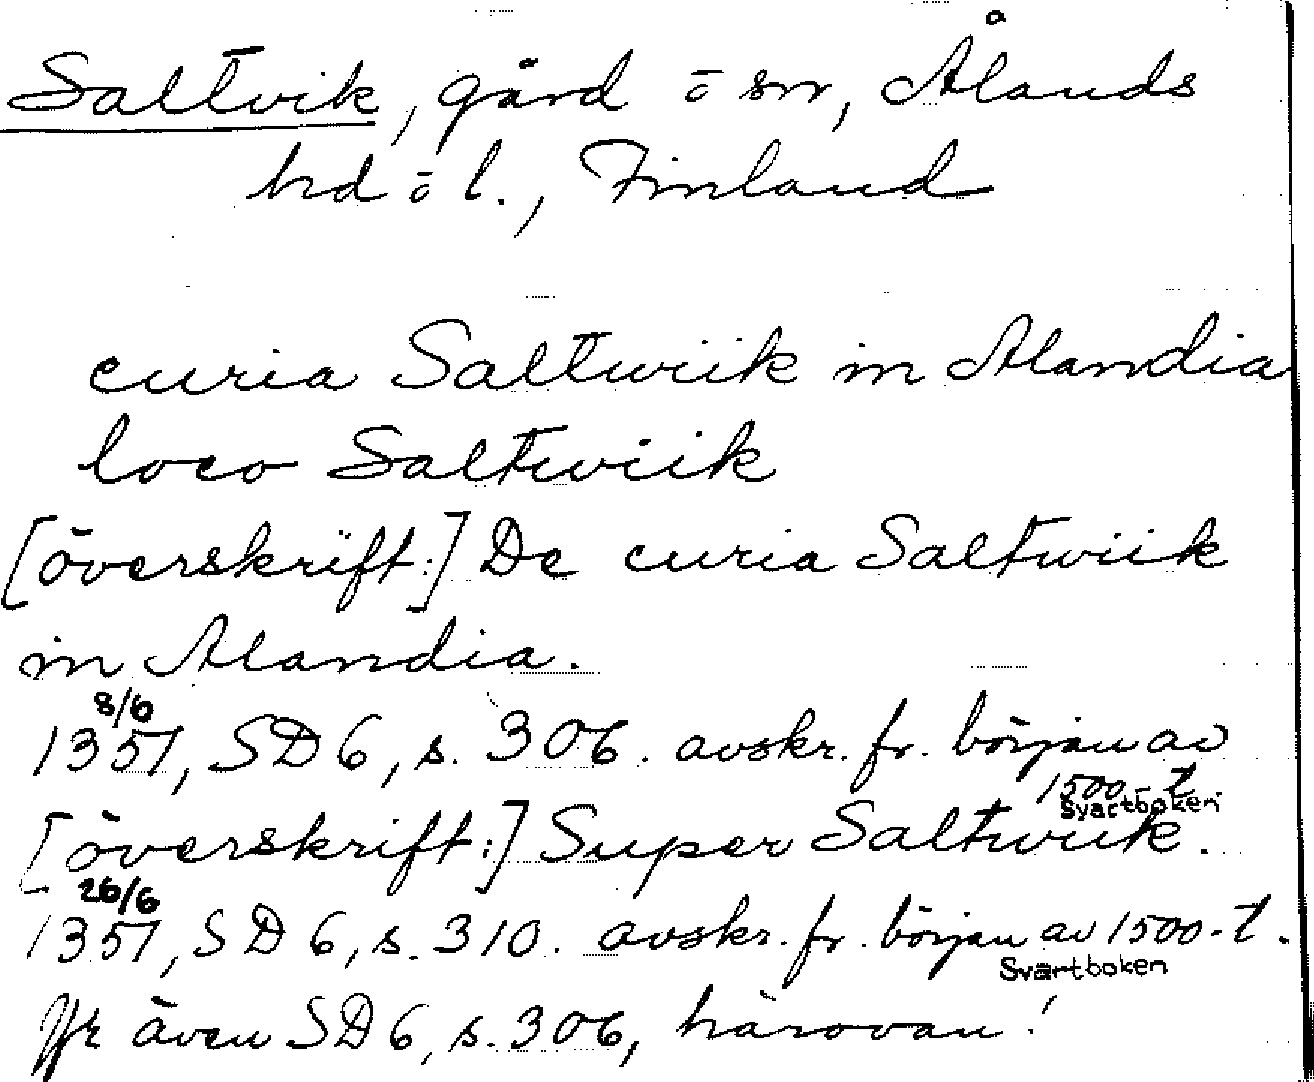 Saltvik, gård o sn, Ålands
hd o l., Finland
curia Saltwiik in Alandia
loco Saltwiik
[överskrift:] De curia Saltwiik
in Alandia.
8/6
1357, SD 6, s. 306. avskr. fr. början av
1500-t.
Svartboken.
[överskrift:] Super Saltwiik.
26/6
1357, SD 6, s. 310. avskr. fr. början av 1500-t.
Svartboken
Jfr även SD 6, s. 306, härovan!